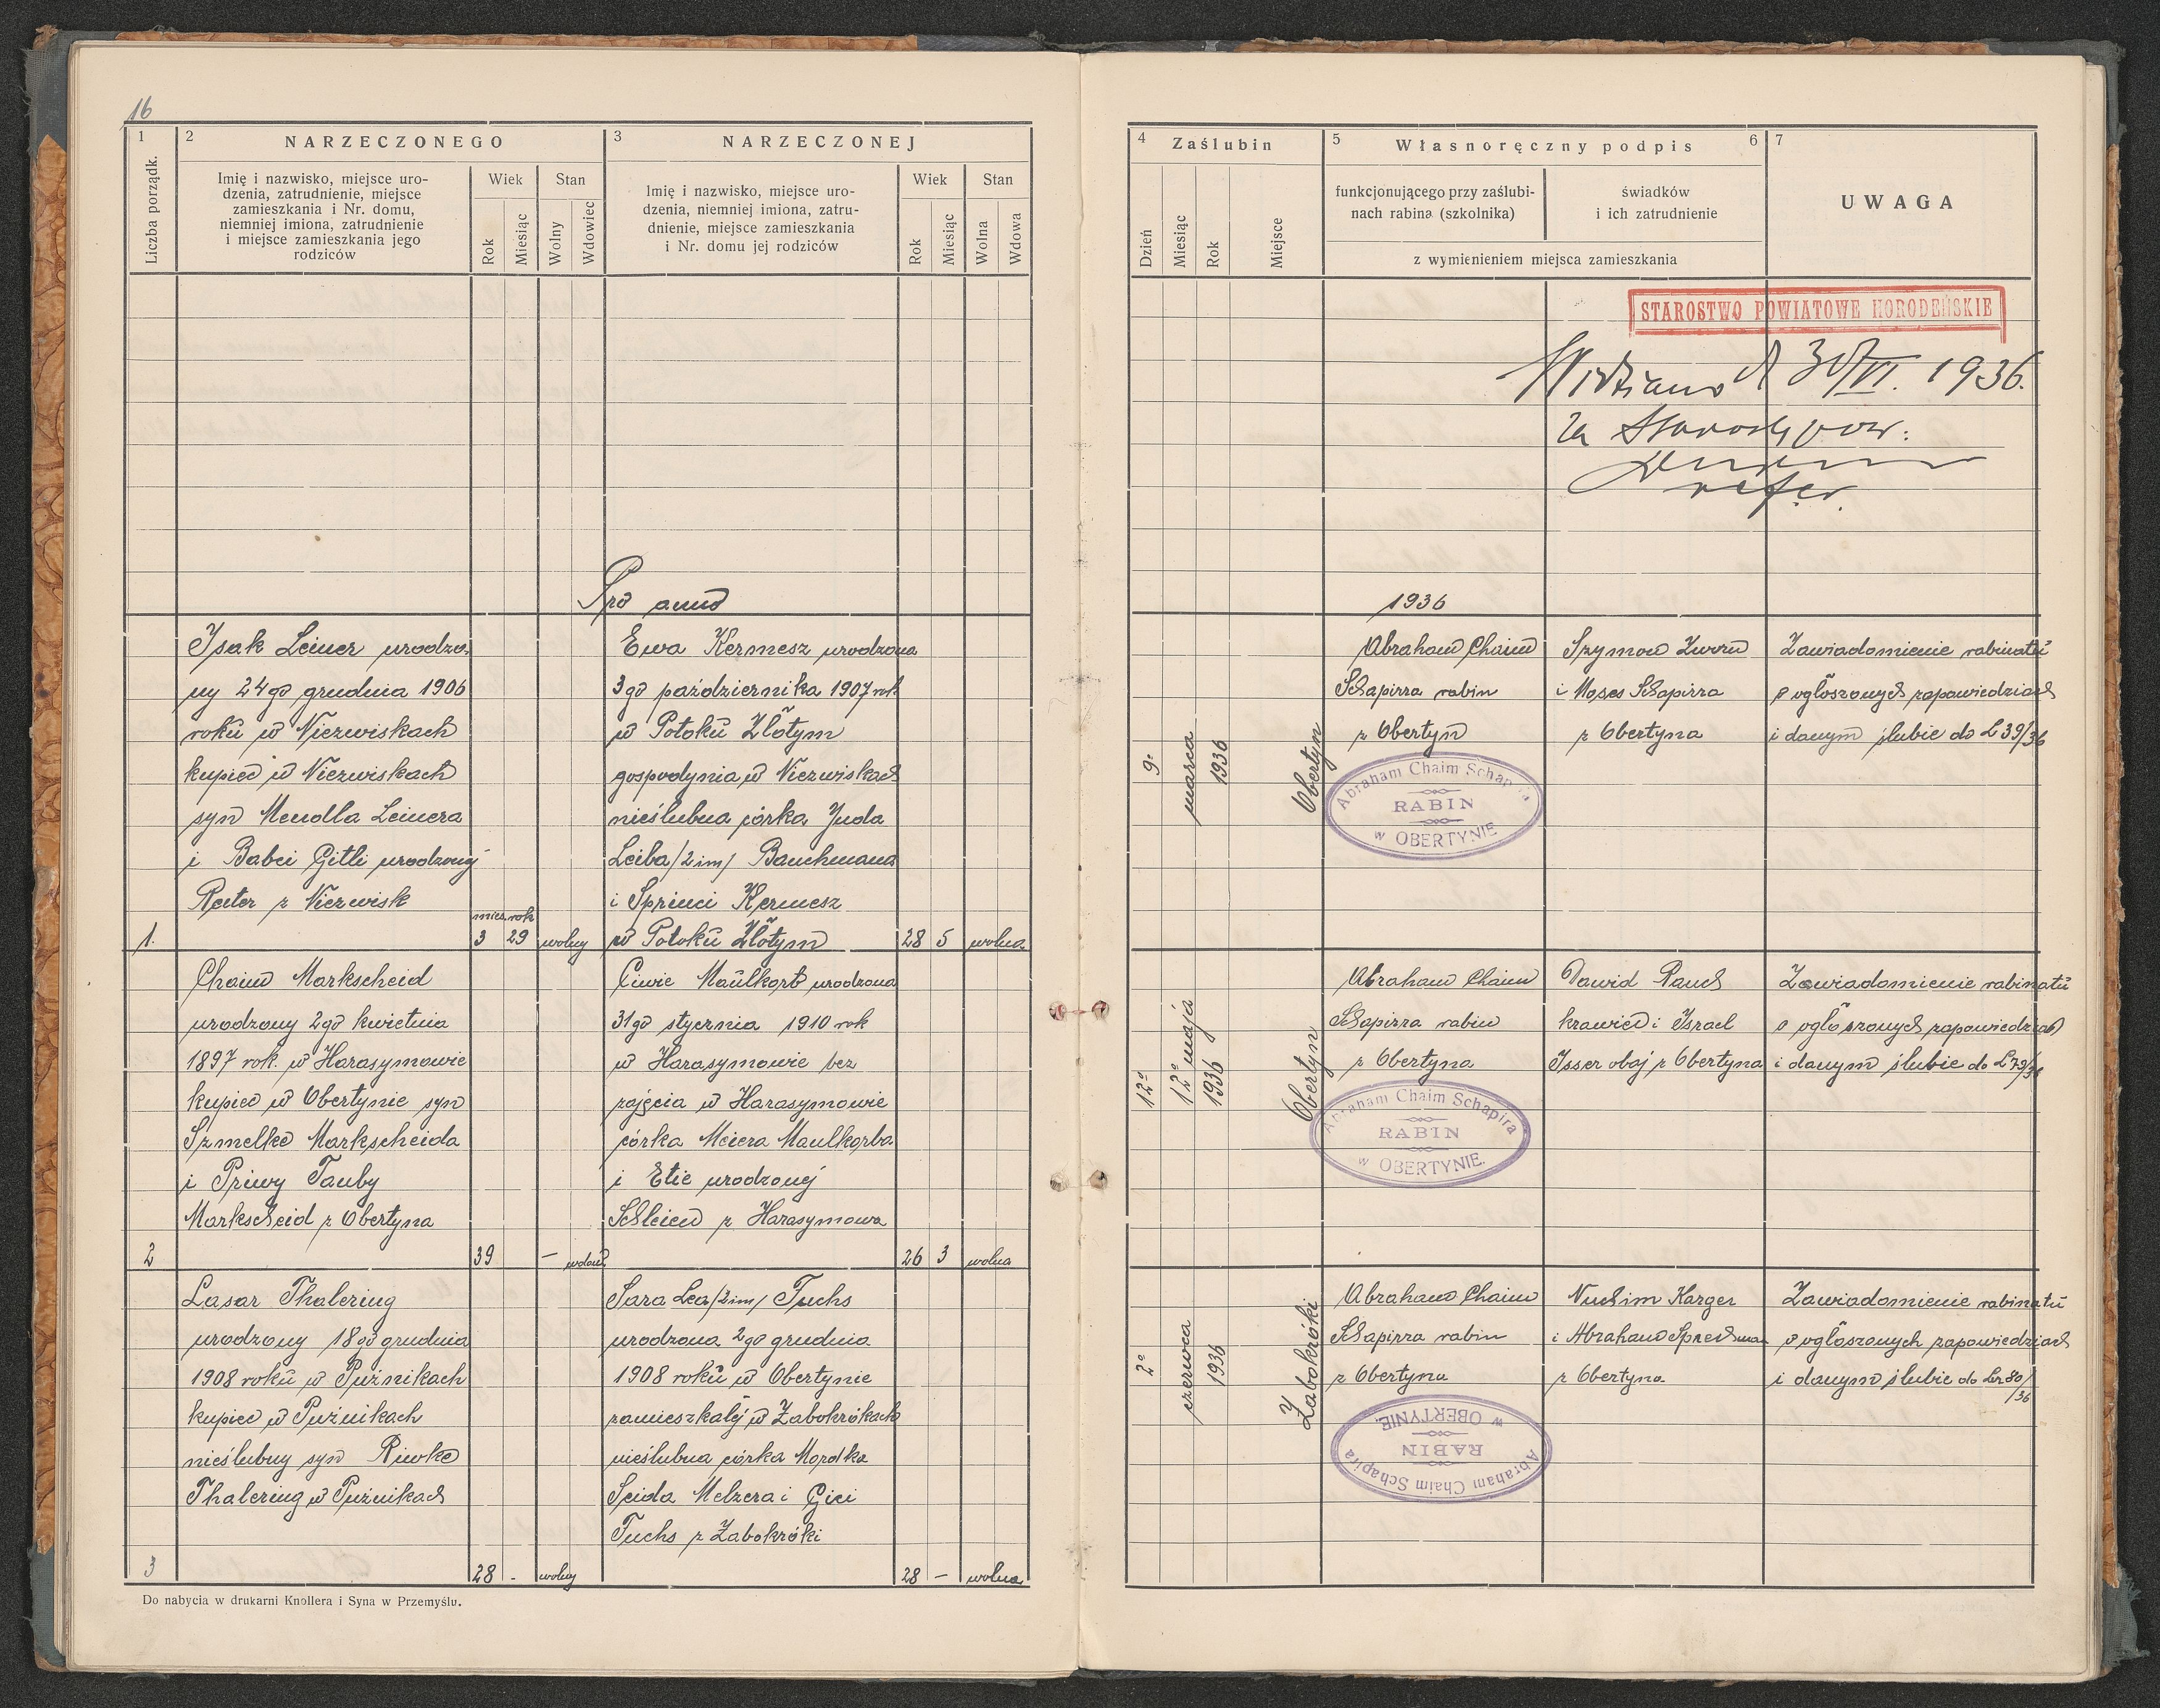 16
1
2
NARZECZONEGO
3
NARZECZONEJ
Liczba porządk.
Imię i nazwisko, miejsce uro-
dzenia, zatrudnienie, miejsce
zamieszkania i Nr. domu,
niemniej imiona, zatrudnienie
i miejsce zamieszkania jego
rodziców
Wiek
Stan
Rok
Miesiąc
Wolny
Wdowiec
Imię i nazwisko, miejsce uro-
dzenia, niemniej imiona, zatru-
dnienie, miejsce zamieszkania
i Nr. domu jej rodziców
Wiek
Stan
Rok
Miesiąc
Wolna
Wdowa
Pro anno
Isak Leiner urodzo-
ny 24go grudnia 1906
roku w Niezwiskach
kupiec w Niezwiskach
syn Mendla Leinera
i Babci Gitli urodzonej
Reiter z Niezwisk
mies. rok
1.
3 29 wolny
Ewa Kermesz urodzona
3go października 1907 rok
w Potoku Złotym
gospodynia w Niezwiskach
nieślubna córka Juda
Leiba /2im/ Bauchmana
i Sprinci Kermesz
w Potoku Złotym
28 5 wolna
Chaim Markscheid
urodzony 2go kwietnia
1897 rok. w Harasymowie
kupiec w Obertynie syn
Szmelke Markscheida
i Priwy Tauby
Markscheid z Obertyna
2
39 –
Ciwie Maulkorb urodzona
31go stycznia 1910 rok
w Harasymowie bez
zajęcia w Harasymowie
córka Meiera Maulkorba
i Etie urodzonej
Schleien z Harasymowa
26 3 wolna
Lasar Thalering
urodzony 18go grudnia
1908 roku w Puźnikach
kupiec w Puźnikach
nieślubny syn Riwke
Thalering w Puźnikach
3
28 - wolny
Sara Lea /2im/ Fuchs
urodzona 2go grudnia
1908 roku w Obertynie
zamieszkałej w Żabokrókach
nieślubna córka Mordka
Seida Melzera i Gici
Fuchs z Żabokróki
28 – wolna
Do nabycia w drukarni Knollera i Syna w Przemyślu.
4
Zaślubin
5
Własnoręczny podpis
6
7
Dzień
Miesiąc
Rok
Miejsce
funkcjonującego przy zaślubi-
nach rabina (szkolnika)
świadków
i ich zatrudnienie
z wymienieniem miejsca zamieszkania
UWAGA
STAROSTWO POWIATOWE HORODEŃSKIE
Widziano d 30/VI. 1936.
za Starosty pow:
refer.
1936
9.
marca
1936
Obertyn
Abraham Chaim
Schapirra rabin
z Obertyn
Abraham Chaim Schapira
RABIN
w OBERTYNIE
Szymon Zworn
i Moses Schapirra
z Obertyna
Zawiadomienie rabinatu
o ogłoszonych zapowiedziach
i danym ślubie do L 39/36
12º
12º maja
1936
Obertyn
Abraham Chaim
Schapirra rabin
z Obertyna
Abraham Chaim Schapira
RABIN
w OBERTYNIE.
Dawid Rauch
krawiec i Israel
Isser obaj z Obertyna
Zawiadomienie rabinatu
o ogłoszonych zapowiedziach
i danym ślubie do L 79/36
2º
czerwca
1936
Żabokróki
Abraham Chaim
Schapirra rabin
z Obertyna
Abraham Chaim Schapira
RABIN
w OBERTYNIE.
Nuchim Karger
i Abraham Sprechman
z Obertyna
Zawiadomienie rabinatu
o ogłoszonych zapowiedziach
i danym ślubie do Lr 80/
/36